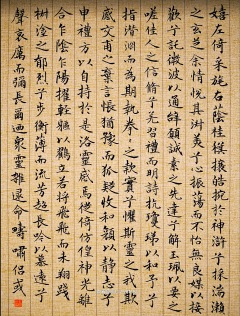 嬉左倚采旄右蔭桂旗攘皓腕於神滸兮採湍瀨
之玄芝余情悦其淑美兮心振蕩而不怡無良媒以接
歡兮託微波以通辭願誠素之先達兮解玉珮以要之
嗟佳人之信脩兮羌習禮而明詩抗瓊珶以和予兮
指潛淵而為期執拳拳之款實兮懼斯靈之我欺
感交甫之棄言悵猶豫而狐疑收和顏以靜志兮
申禮方以自持於是洛靈感焉徙倚仿偟神光離
合乍陰乍陽擢輕軀以鶴立若將飛而未翔踐
椒塗之郁烈兮步蘅薄而流芳超長吟以慕遠兮
聲哀厲而彌長爾乃衆靈雜遝命疇嘯侣或